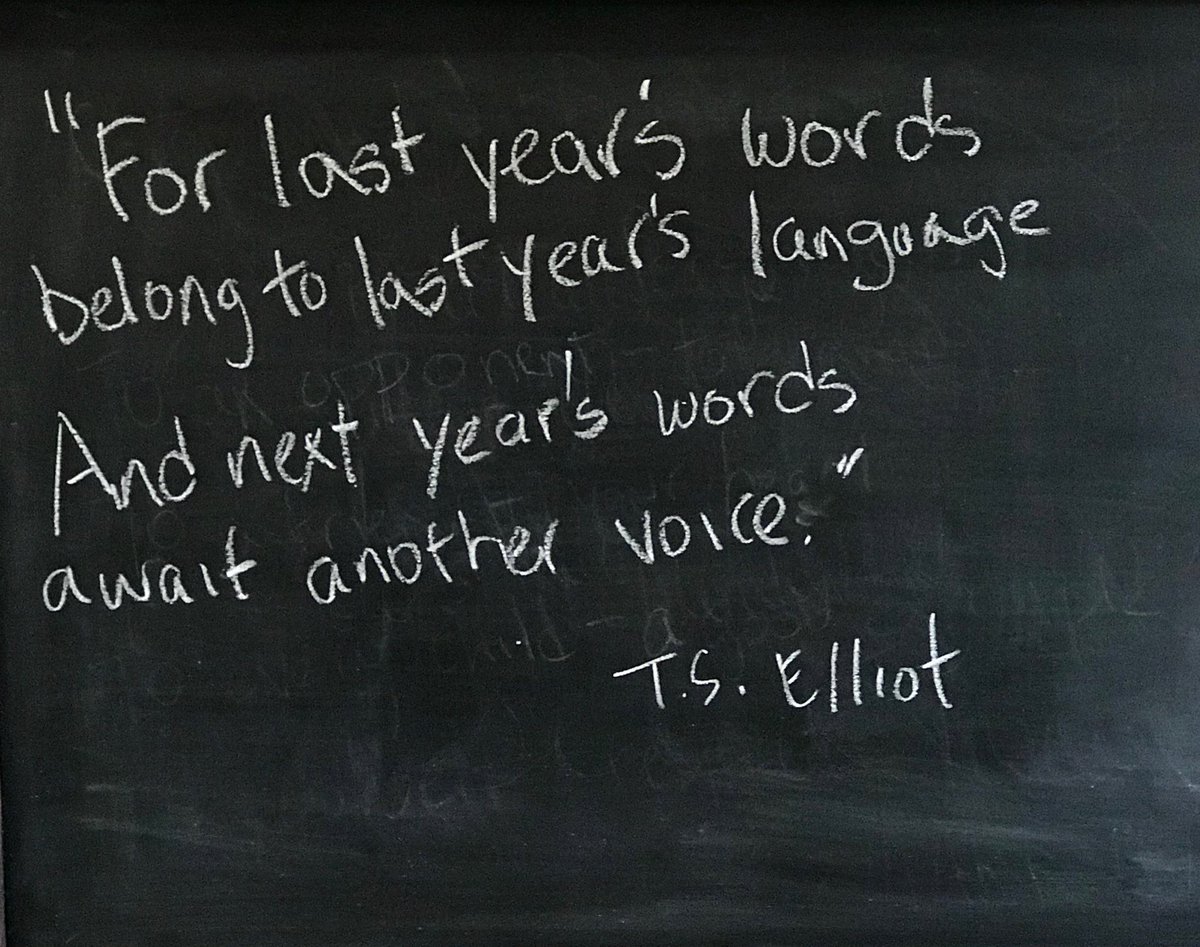 "For last year's words
belong to last year's language
And next year's words
await another voice."
T.S. Elliot